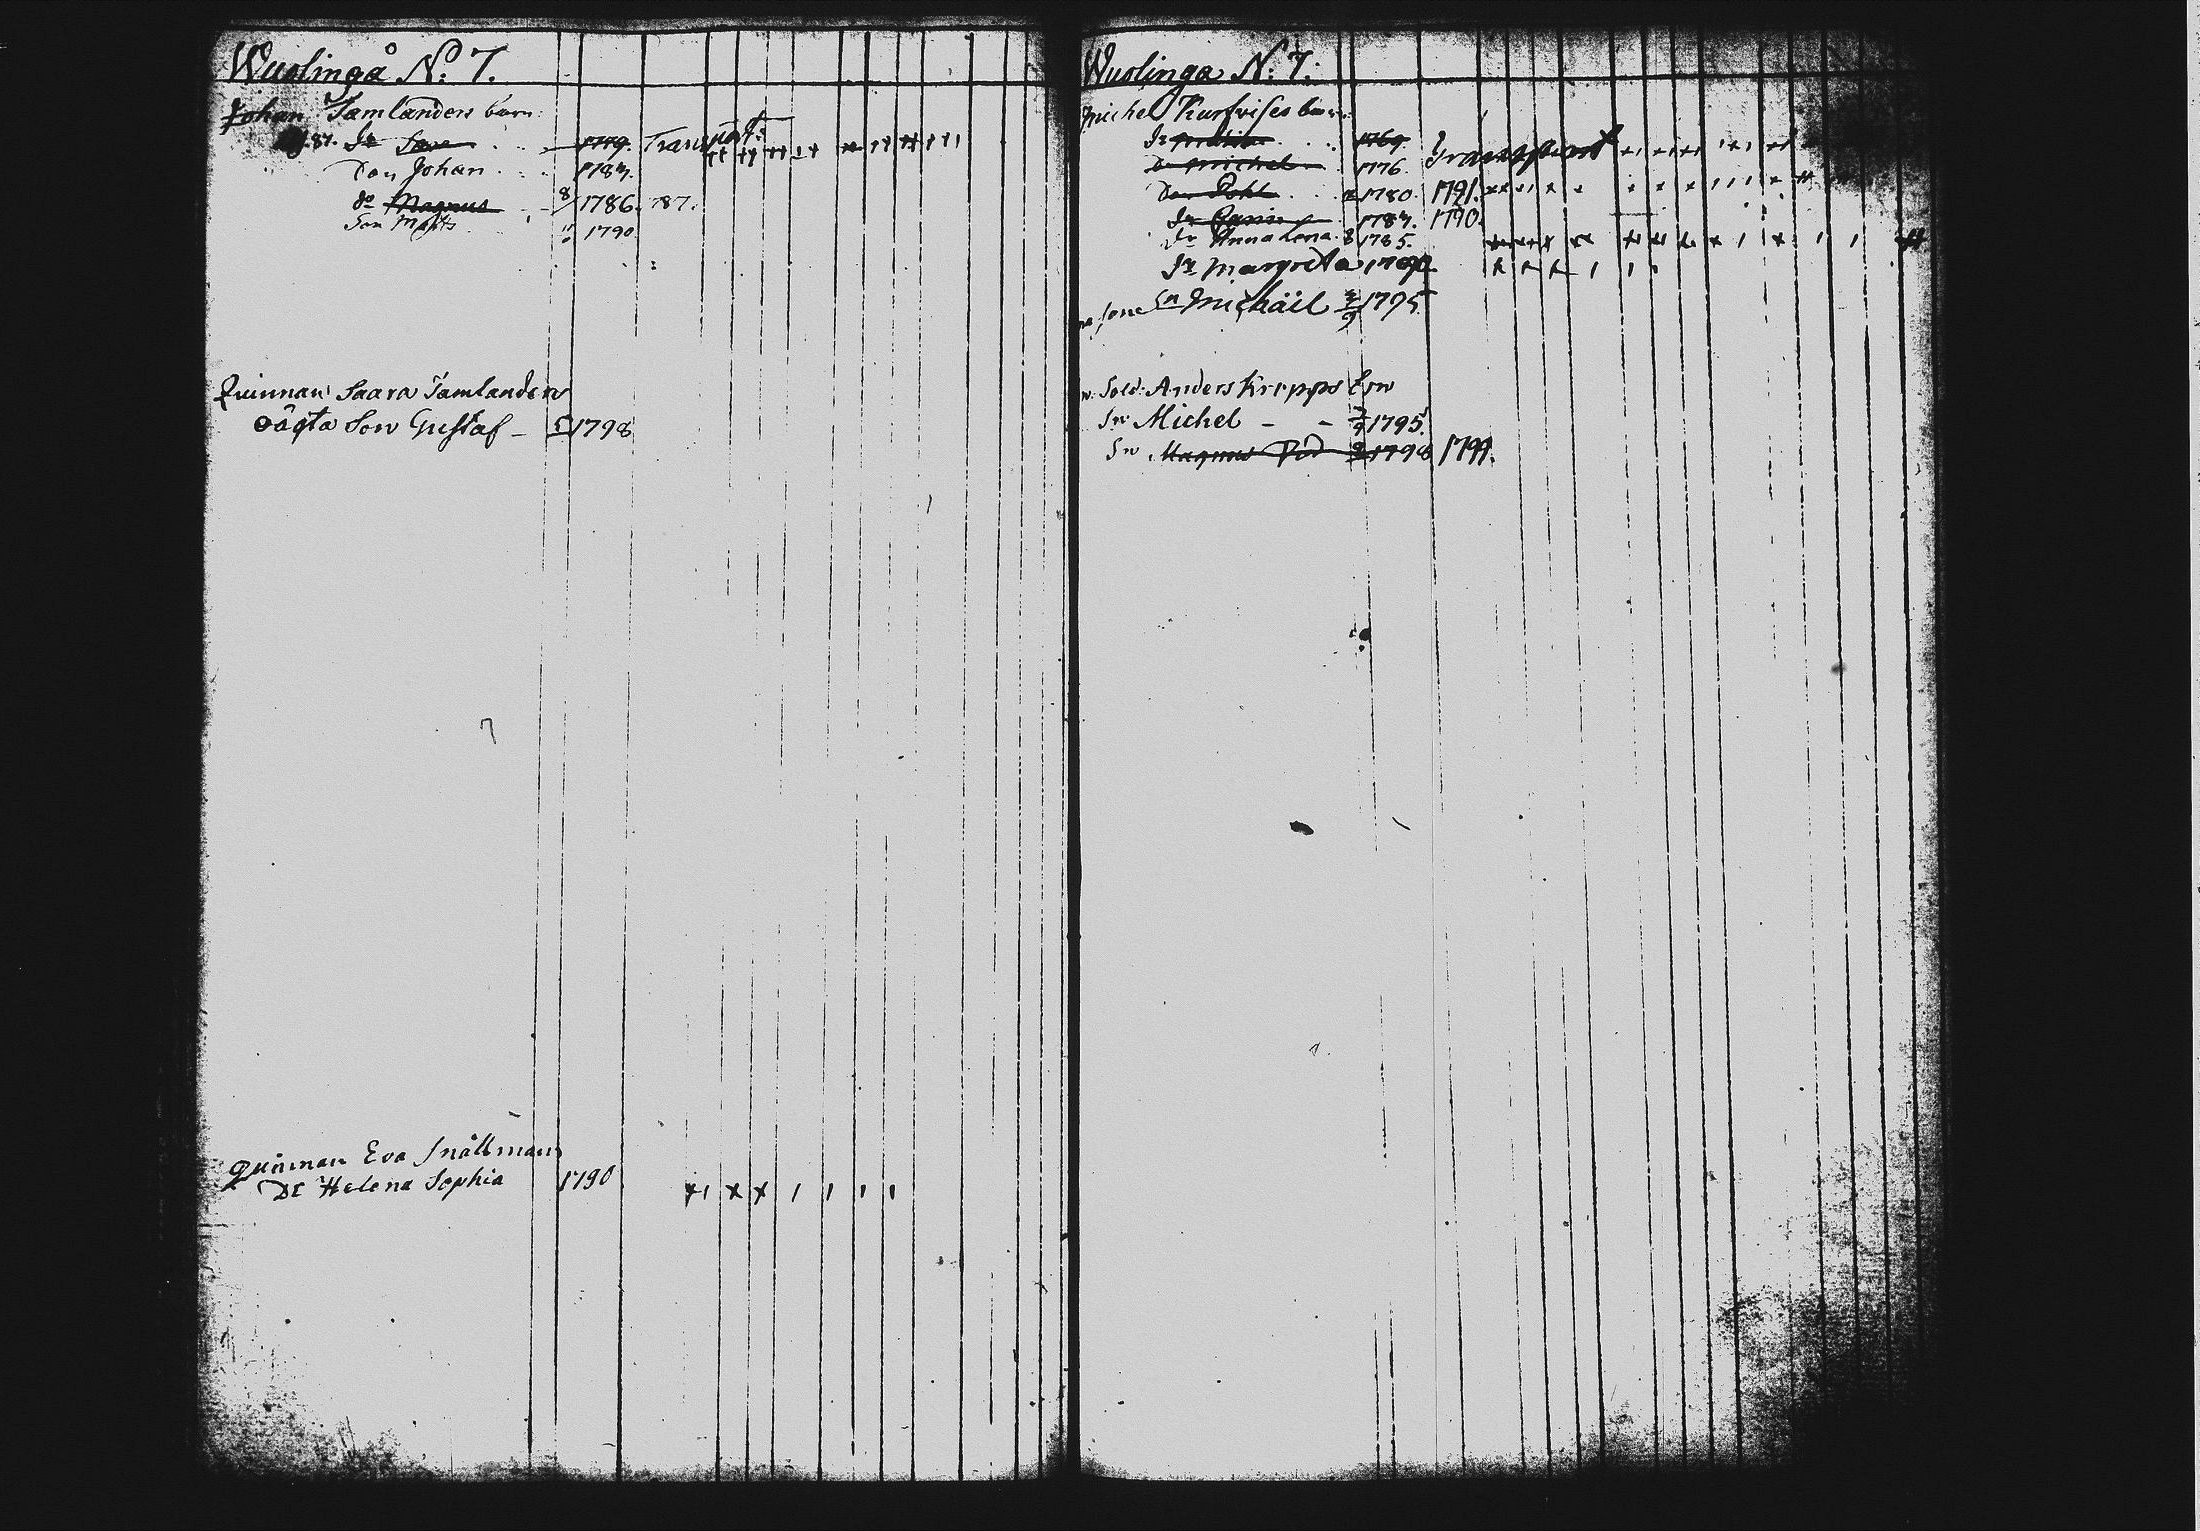 Wuolinga N: 7.
Johan Tamlanders barn:
87. Dr Sara 1779. Transport:
Son Johan 1783.
do Magnus 8/ 1786. 787.
Son Matts 1790
Quinnan Saara Tamlanders
oägta Son Gustaf 1798
Quinnan Eva Snällmans
Dr Helena Sophia 1790
Wuolinga N: 7.
Michel Kurfvises barn:
Dr 1769. Transport
Michel 1776.
Son 1780. 1791.
Dr Carin 1783. 1790.
Dr Anna Lena 8 1785.
Dr Margreta
Sn Michäil 3/9 1795
Sold: Anders Krepps
Sn Michel 1795.
Sn Magnus Död 1798 1799.